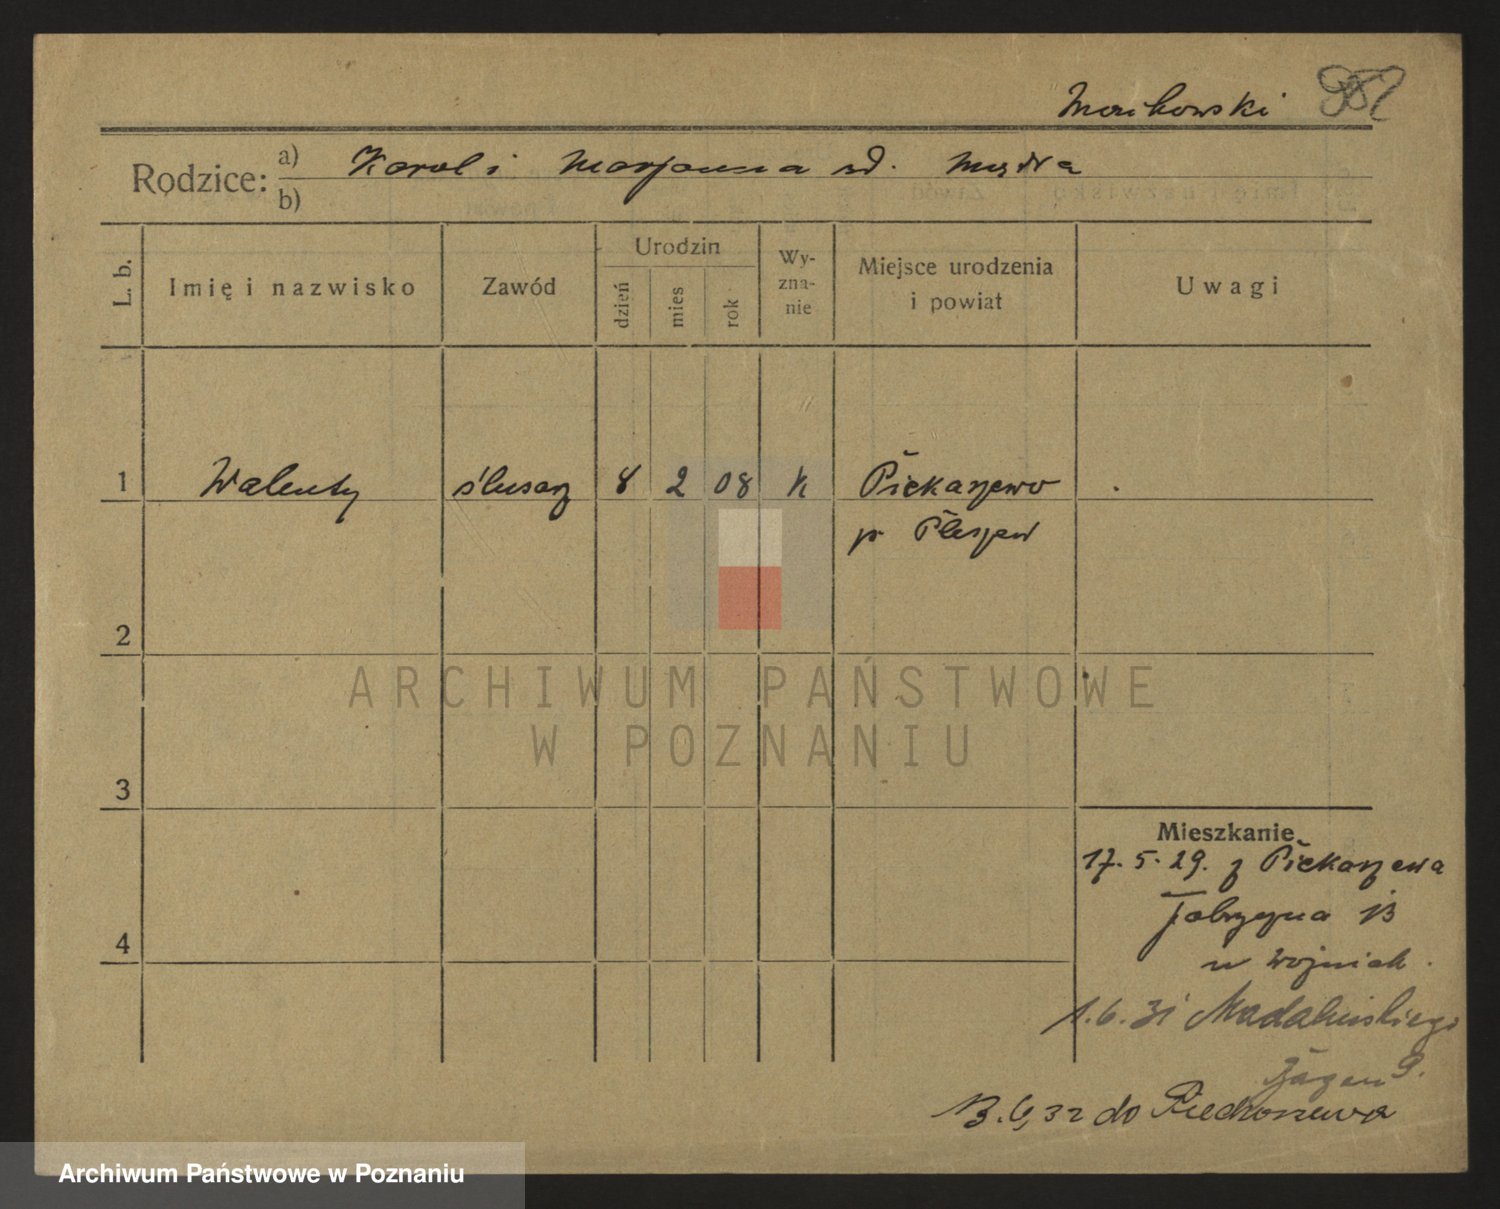 Morikowski 982
Rodzice: a) Karol i Marjanna zd.
b)
L. b.
Imię i nazwisko
Zawód
Urodzin
dzień
mies
rok
Wy-
zna-
nie
Miejsce urodzenia
i powiat
Uwagi
1 Walenty ślusarz 8 2 08 k Piekarzewo
p Pleszew
2
ARCHIWUM PAŃSTWOWE
W POZNANIU
3
Mieszkanie
17.5.29. z Piekarzewa
Fabryczna 13
u Wojniak.
4
1.6.31 Madalińskiego 9.
13.6,32 do
Archiwum Państwowe w Poznaniu